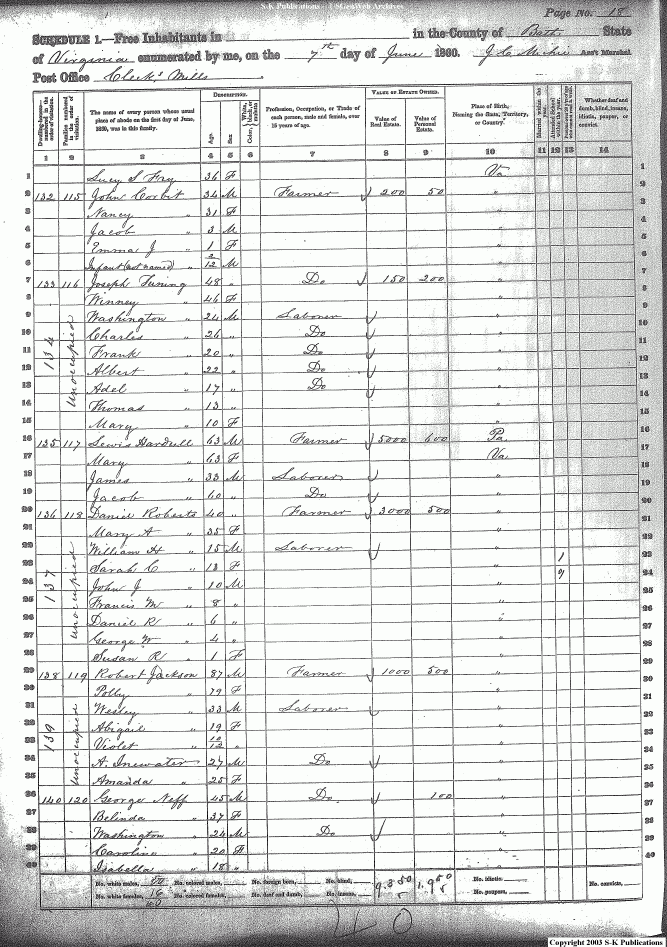 S-K Publications - USGenWeb Archives
Page No. 18
SCHEDULE 1.—Free Inhabitants in in the County of Bath State
of Virginia enumerated by me, on the 7th day of June 1860. Ass't Marshal
Post Office Clek's Mills
Dwelling-houses numbered in the order of visitation.
Families numbered in the order of visitation.
The name of every person whose usual place of abode on the first day of June, 1860, was in this family.
DESCRIPTION.
Age. Sex. Color,
Profession, Occupation, or Trade of each person, male and female, over 15 years of age.
VALUE OF ESTATE OWNED.
Value of Real Estate. Value of Personal Estate.
Place of Birth, Naming the State, Territory, or Country.
Married within the year.
Attended School within the year.
Whether deaf and dumb, blind, insane, idiotic, pauper, or convict.
1 2 3 4 5 6 7 8 9 10 11 12 13 14
1 Lucy S Fry 36 F Va 1
2 132 115 John Corbit " 34 M Farmer 200 50 " 2
3 Nancy " 31 F " 3
4 Jacob " 3 M " 4
5 Emma J " 1 F " 5
6 Infant (not named) " 2/12 M " 6
7 133 116 Joseph Tuning 48 " Do 150 200 " 7
8 Winney " 46 F " 8
9 Washington " 24 M Laborer " 9
10 134 Unoccupied Charles " 26 " Do " 10
11 Frank " 20 " Do " 11
12 Albert " 22 " Do " 12
13 Adel " 17 " Do " 13
14 Thomas " 13 " " 14
15 Mary " 10 F " 15
16 135 117 Lewis 63 M Farmer 5000 600 Pa. 16
17 Mary " 63 F Va. 17
18 James " 33 M Laborer " 18
19 Jacob " 60 " Do " 19
20 136 118 Daniel Roberts 40 " Farmer 3000 500 " 20
21 Mary A " 35 F " 21
22 William H " 15 M Laborer " 22
23 137 Unoccupied Sarah C " 13 F " 1 23
24 John J " 10 M " 24
25 Francis M " 8 " " 25
26 Daniel R " 6 " " 26
27 George W " 4 " " 27
28 Susan R " 1 F " 28
29 138 119 Robert Jackson 87 M Farmer 1000 500 " 29
30 Polly " 79 F " 30
31 Wesley " 33 M Laborer " 31
32 139 Unoccupied Abigail " 19 F " 32
33 Violet " 10/12 " " 33
34 A. Inewater " 27 M Do " 34
35 Amanda " 25 F " 35
36 140 120 George Neff 45 M Do 100 " 36
37 Belinda " 37 F " 37
38 Washington " 24 M Do " 38
39 Caroline " 20 F " 39
40 Isabella " 18 " " 40
No. white males, No. colored males, No. foreign born, No. blind, No. idiotic,
No. white females, 16 No. colored females, No. deaf and dumb, No. insane, No. paupers, No. convicts,
Copyright 2003 S-K Publications